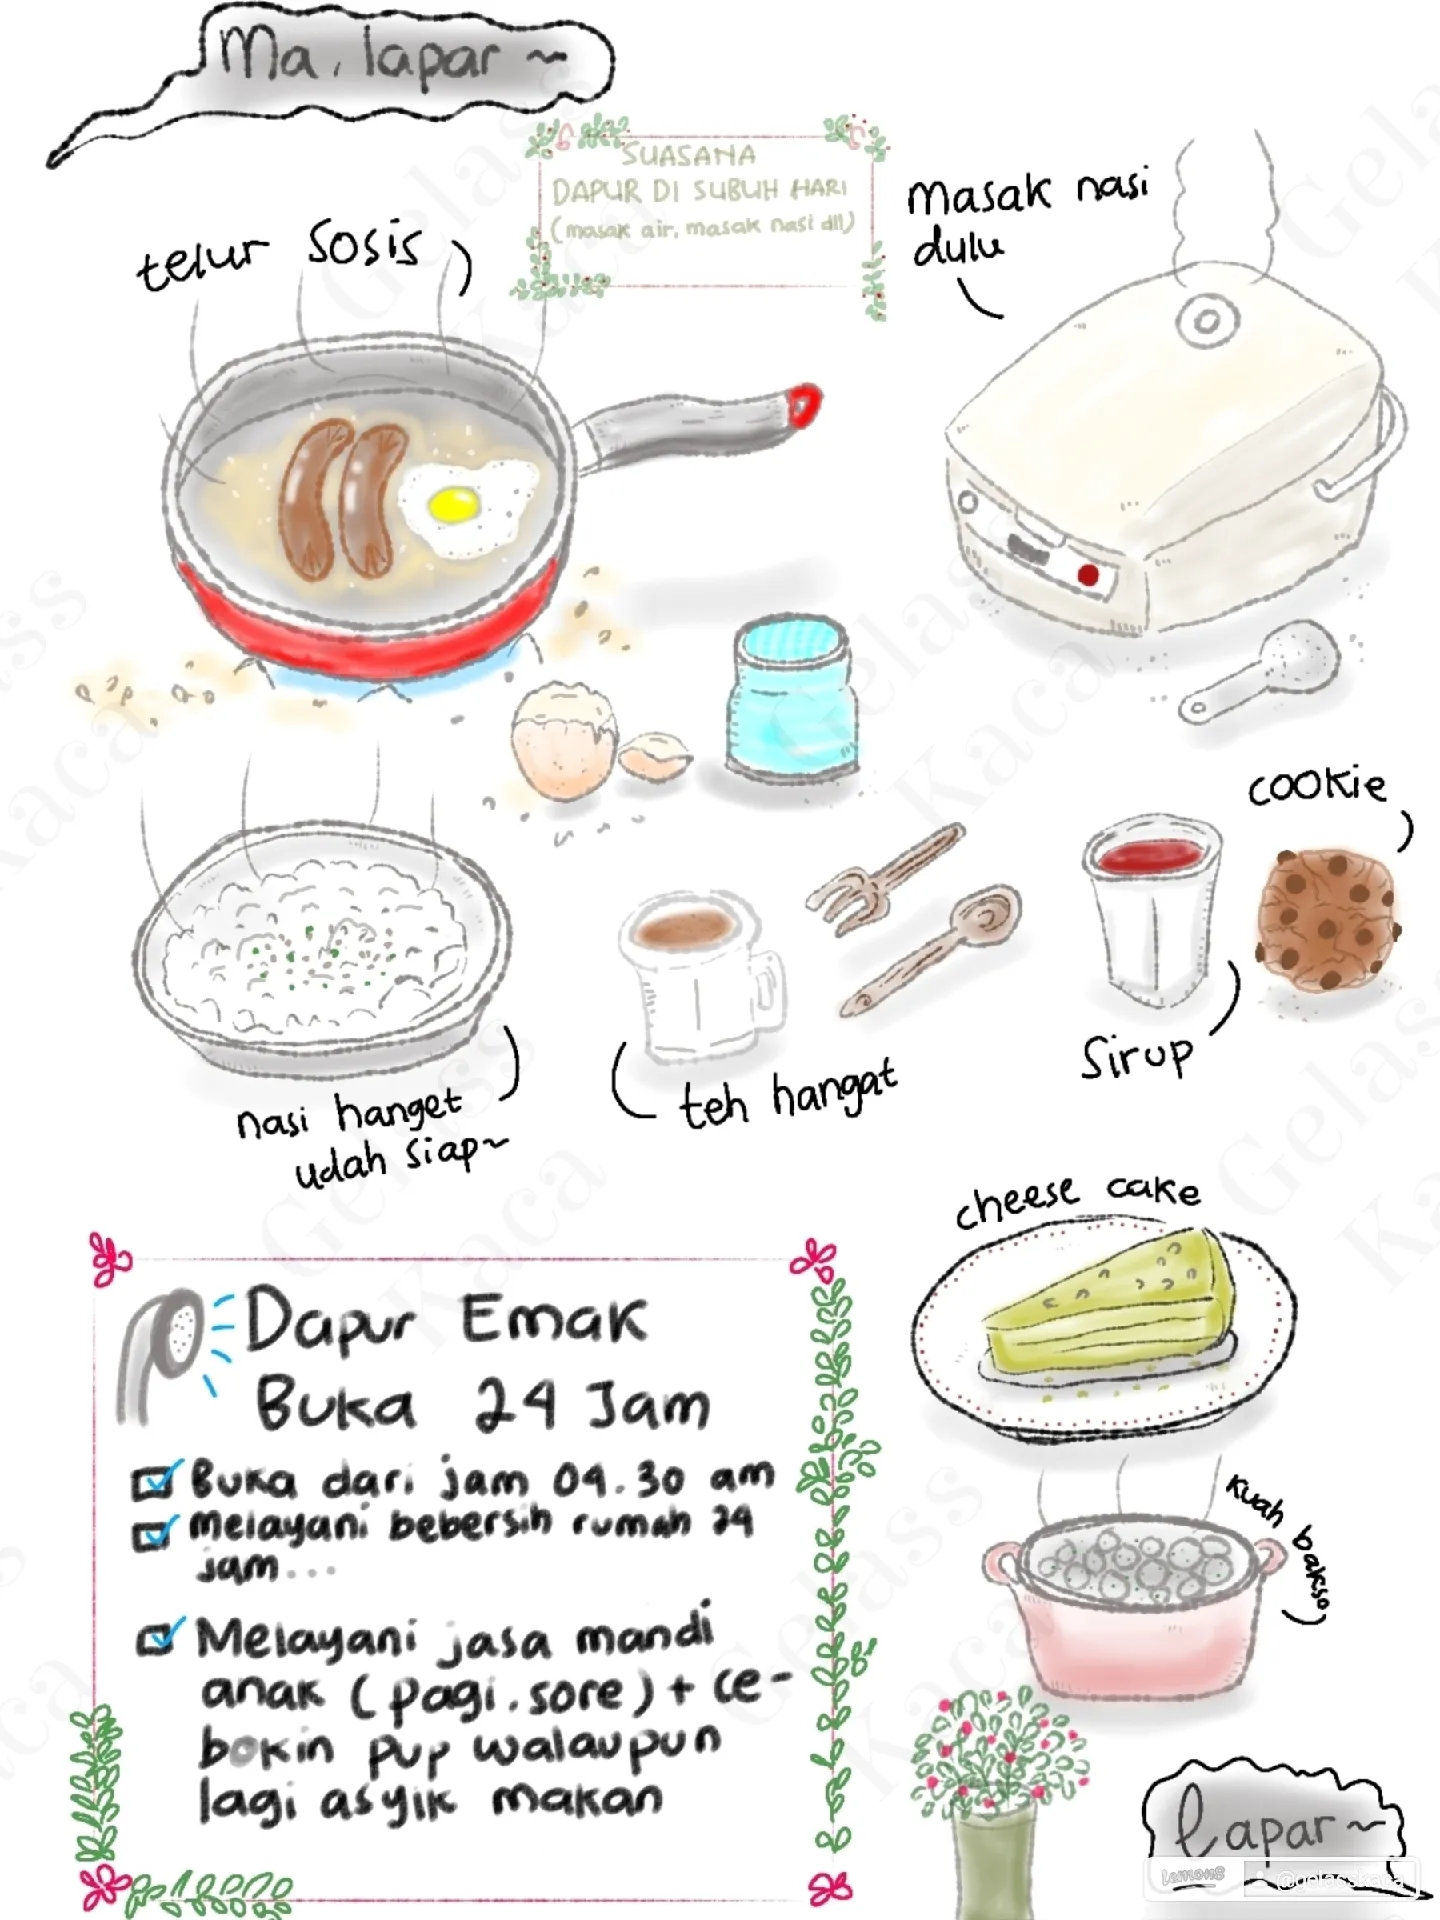 Ma, lapar ~
SUASANA
DAPUR DI SUBUH HARI
(masak air, masak nasi dll)
masak nasi
dulu
telur sosis
cookie
Sirup
teh hangat
nasi hanget
udah siap~
cheese cake
Dapur Emak
Buka 24 Jam
Buka dari jam 04.30 am
Melayani bebersih rumah 24
jam...
Melayani jasa mandi
anak (pagi.sore) + ce-
bokin pup walaupun
lagi asyik makan
kuah bakso
lapar~
lemon8
@gelasskaca
Gelass
Kaca